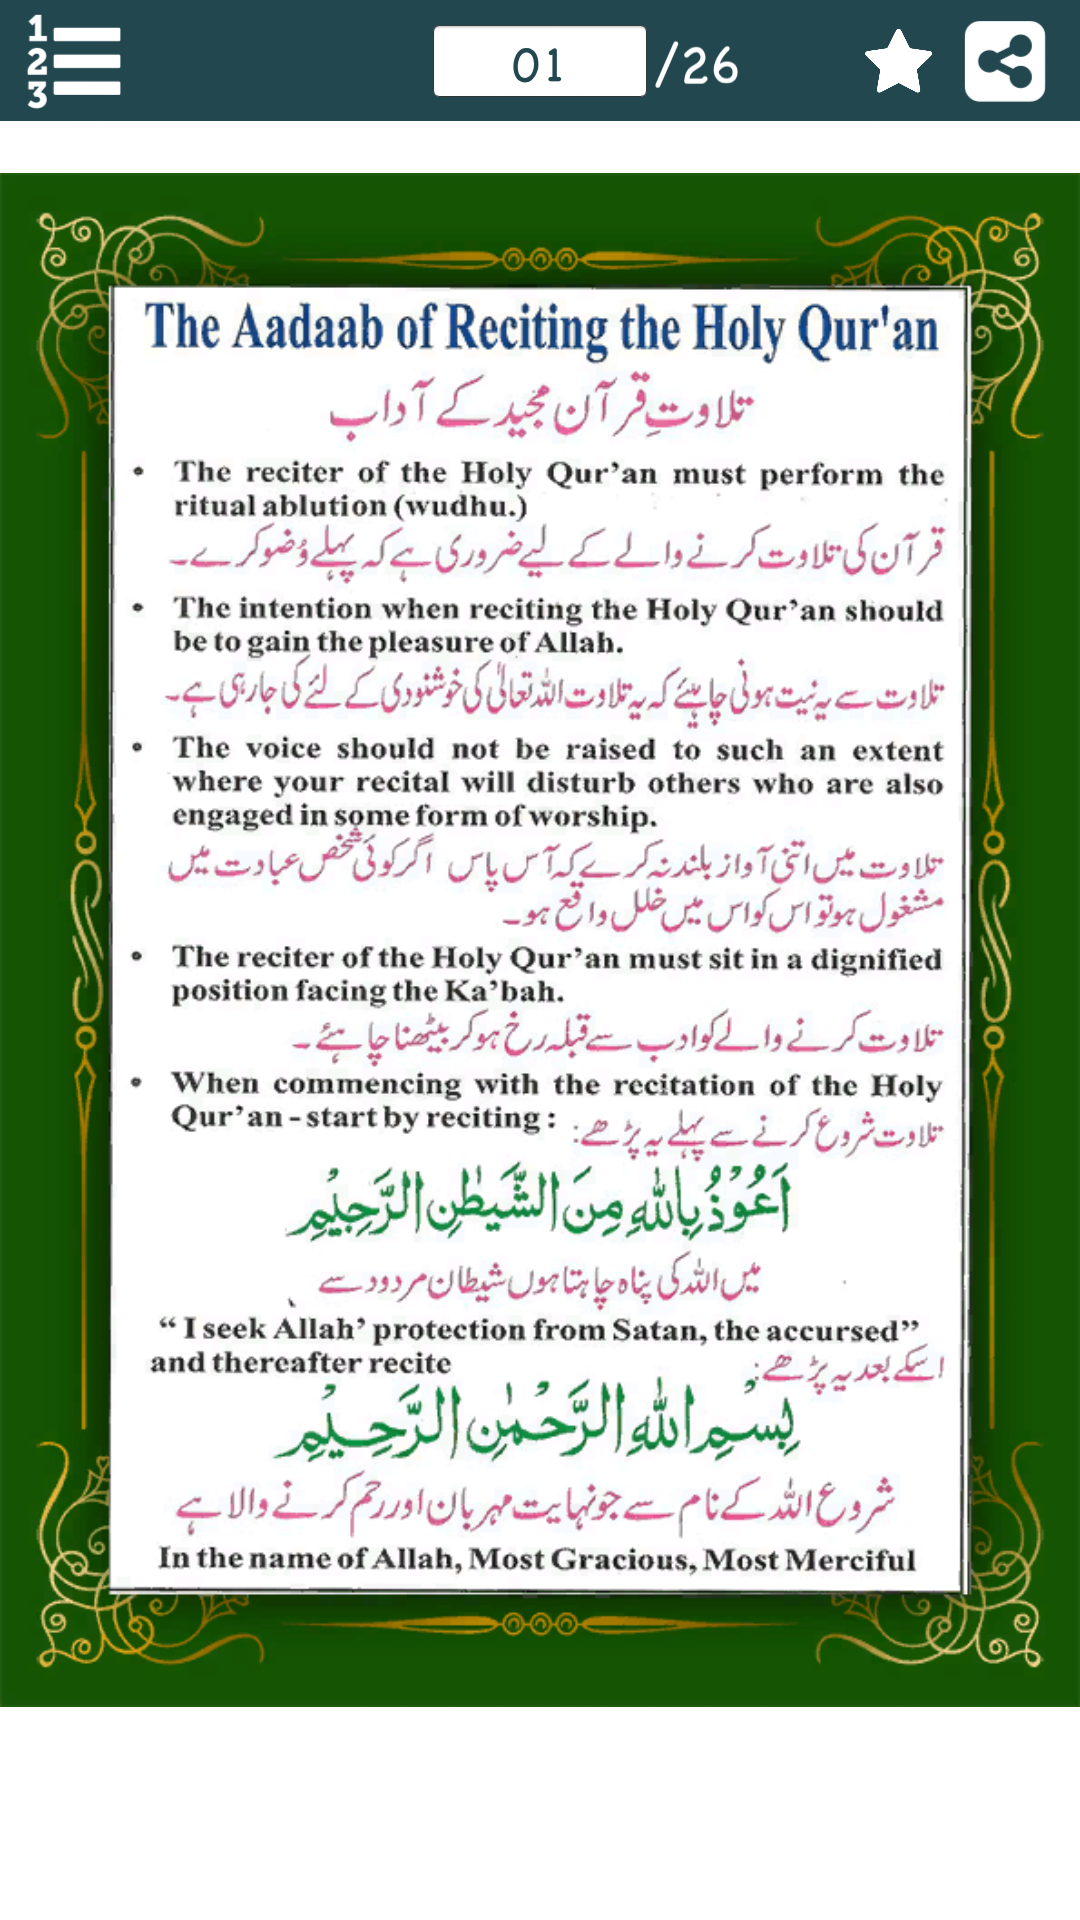 1
2
3
01 /26
The Aadaab of Reciting the Holy Qur'an
تلاوتِ قرآن مجید کے آداب
• The reciter of the Holy Qur’an must perform the
ritual ablution (wudhu.)
قرآن کی تلاوت کرنے والے کے لیے ضروری ہے کہ پہلے وُضو کرے۔
• The intention when reciting the Holy Qur’an should
be to gain the pleasure of Allah.
تلاوت سے یہ نیت ہونی چاہیئے کہ یہ تلاوت اللہ تعالیٰ کی خوشنودی کے لئے کی جارہی ہے۔
• The voice should not be raised to such an extent
where your recital will disturb others who are also
engaged in some form of worship.
تلاوت میں اتنی آواز بلند نہ کرے کہ آس پاس اگر کوئی شخص عبادت میں
مشغول ہو تو اس کو اس میں خلل واقع ہو۔
• The reciter of the Holy Qur’an must sit in a dignified
position facing the Ka’bah.
تلاوت کرنے والے کو ادب سے قبلہ رخ ہو کر بیٹھنا چاہئے۔
• When commencing with the recitation of the Holy
Qur’an - start by reciting : تلاوت شروع کرنے سے پہلے یہ پڑھے:
اَعُوْذُ بِاللّٰهِ مِنَ الشَّيْطٰنِ الرَّجِيْمِ
میں اللہ کی پناہ چاہتا ہوں شیطان مردود سے
“ I seek Allah’ protection from Satan, the accursed”
and thereafter recite اسکے بعد یہ پڑھے:
بِسْمِ اللّٰهِ الرَّحْمٰنِ الرَّحِيْمِ
شروع اللہ کے نام سے جو نہایت مہربان اور رحم کرنے والا ہے
In the name of Allah, Most Gracious, Most Merciful